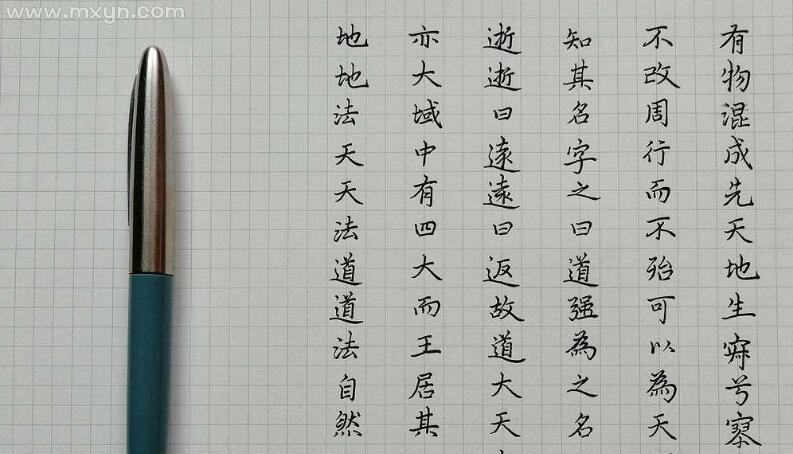 www.mxyn.com
有物混成先天地生寂兮寥
不改周行而不殆可以為天
知其名字之曰道强為之名
逝逝曰遠遠曰返故道大天
亦大域中有四大而王居其
地地法天天法道道法自然